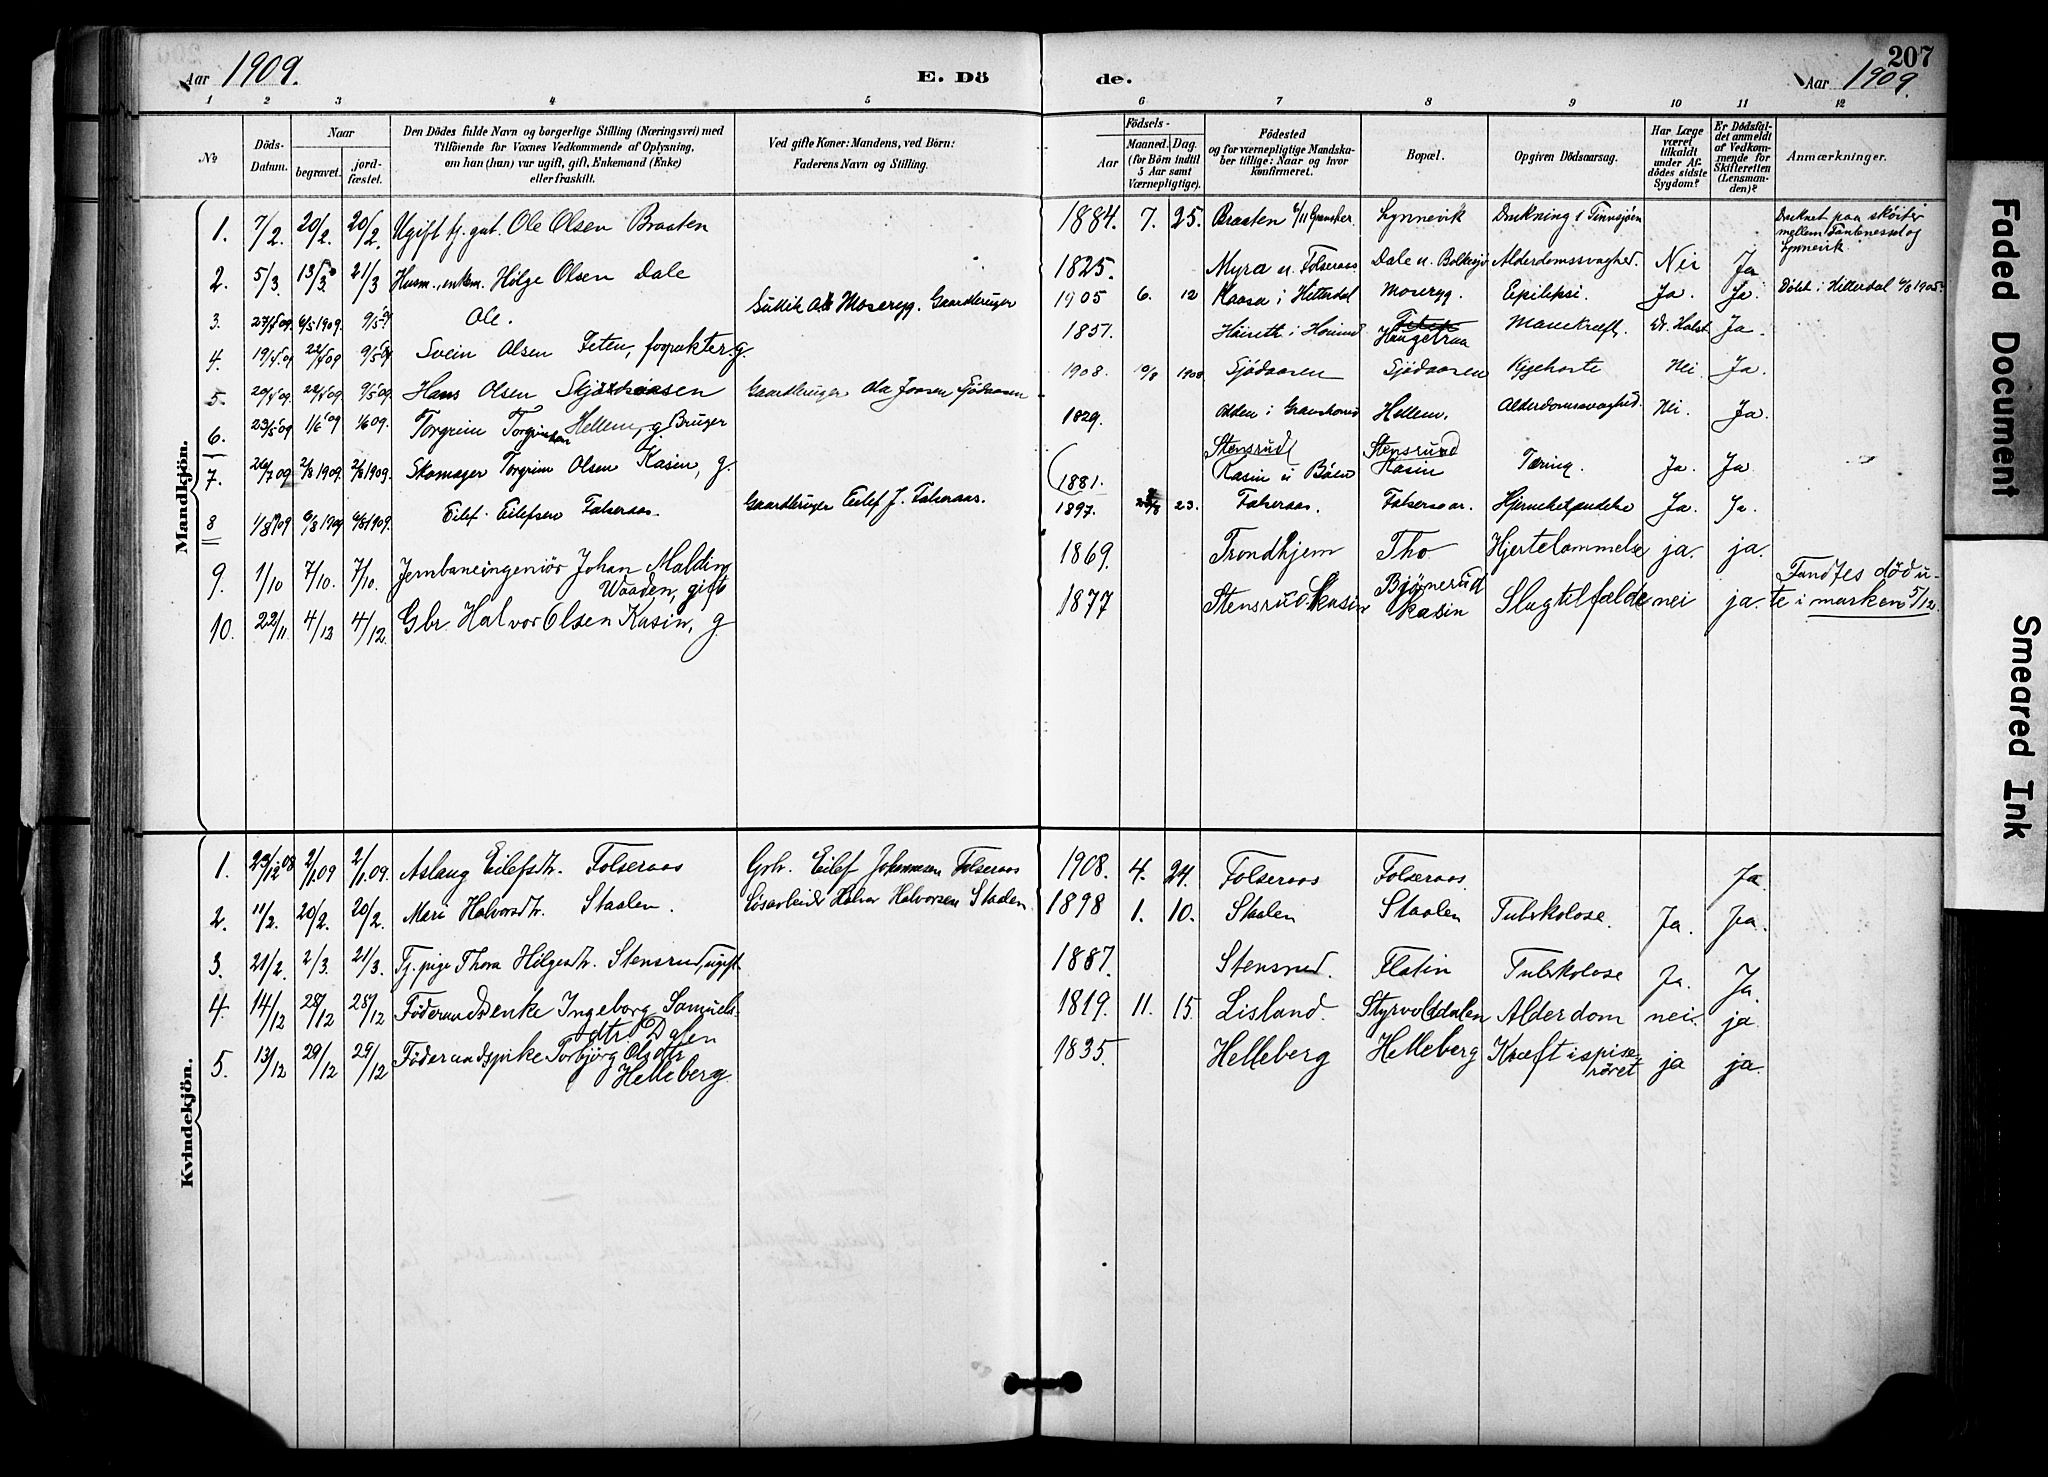 207
Aar 1909. E. Dö de. Aar 1909.
1 2 3 4 5 6 7 8 9 10 11 12
No
Döds-Datum.
Naar
begravet. jordfæstet.
Den Dödes fulde Navn og borgerlige Stilling (Næringsvei) med
Tilföiende for Voxnes Vedkommende af Oplysning,
om han (hun) var ugift, gift, Enkemand (Enke)
eller fraskilt.
Ved gifte Koner: Mandens, ved Börn:
Faderens Navn og Stilling.
Födsels-
Aar
Maaned. Dag.
(for Börn indtil
5 Aar samt
Værnepligtige).
Födested
og for værnepligtige Mandskaber tillige: Naar og hvor
konfirmeret.
Bopæl.
Opgiven Dödsaarsag.
Har Læge
været
tilkaldt
under Afdödes sidste
Sygdom?
Er Dödsfaldet anmeldt
af Vedkommende for
Skifteretten
(Lensmanden)?
Anmærkninger.
Mandkjön.
1. 7/2. 20/2. 20/2. Ugift tj. gut. Ole Olsen Braaten 1884. 7. 25. Braaten Lynnevik Drukning i Tinnsjöen Druknet paa skøiter
mellem og
Lynnevik
2. 5/3. 13/3. 21/3 Husm., enkem. Hölge Olsen Dale 1825. Myra u. Folseraas Dale u. Bolkesjö Alderdomssvaghed. Nei Ja
3. 6/5 1909. 9/5 09 Ole. Moseryg. Gaardbruger 1905 6. 12 Kaasa i Hitterdal Moseryg. Epilepsi. Ja. Ja. Döbt i Hitterdal
4. 19/4 09 22/4 09 9/5 09 Svein Olsen Teten, forpakter g. 1857. Haugetraa Mavekræft. Dr. Holst Ja.
5. 20/4 09. 9/5 09. Hans Olsen Gaardbruger Ola Joesen Sjödaasen 1908. 10/3 1908. Sjödaasen Sjödaasen Kighoste Nei. Ja.
6. 23/5 09 1/6 09 1/6 09. Torgrim Torgrimsen Hellem, g. Bruger 1829. i Gransherad Hellem. Alderdomssvaghed. Nei. Ja.
7. 26/7 09 2/8 1909. 2/8 1909. Skomager Torgrim Olsen Kasin, g. 1881. Stensrud
Kasin u Böen Stensrud
Kasin Tæring. Ja. Ja
8 1/8 09 6/8 1909 6/8 1909. Eilef Eilefsen Folseraas. Gaardbruger Eilef J. Folseraas. 1897. 23. Folseraas. Folseraas. Hjernebetændelse Ja. Ja.
9. 1/10 7/10. 7/10. Jernbaneingeniör Johan Malding
Waaden, gift 1869. Trondhjem Tho Hjertelammelse ja. ja.
10. 22/11 4/12 4/12. Gbr. Halvor Olsen Kasin, g 1877 Stensrud Kasin Bjönerud
Kasin Slagtilfælde nei ja. Fandtes död ute i marken 5/12.
Kvindekjön.
1. 23/12 08 2/1 09 2/1 09. Aslaug Eilefsdtr. Folseraas Grbr. Eilef Johannesen Folseraas 1908. 4. 24. Folseraas Folseraas. Ja.
2. 11/2. 20/2. 20/2. Mari Halvorsdtr. Staalen. Lösarbeider Halvor Halvorsen Staalen 1898 1. 10. Staalen Staalen Tuberkolose. Ja. Ja.
3. 21/2. 2/3. 21/3. Tj. pige Thora Hölgesdtr. Stensrud, ugift 1887. Stensrud. Flatin Tuberkolose Ja. Ja.
4. 14/12 28/12 28/12 Föderaadsenke Ingeborg Samuels-
dtr. Dalen 1819. 11. 15. Lisland. Styrvolddalen Alderdom nei. ja
5. 13/12 29/12 29/12 Föderaadspike Torbjörg Olsdtr
Helleberg 1835. Helleberg Helleberg Kræft i spise-
röret ja ja.
Faded Document
Smeared Ink